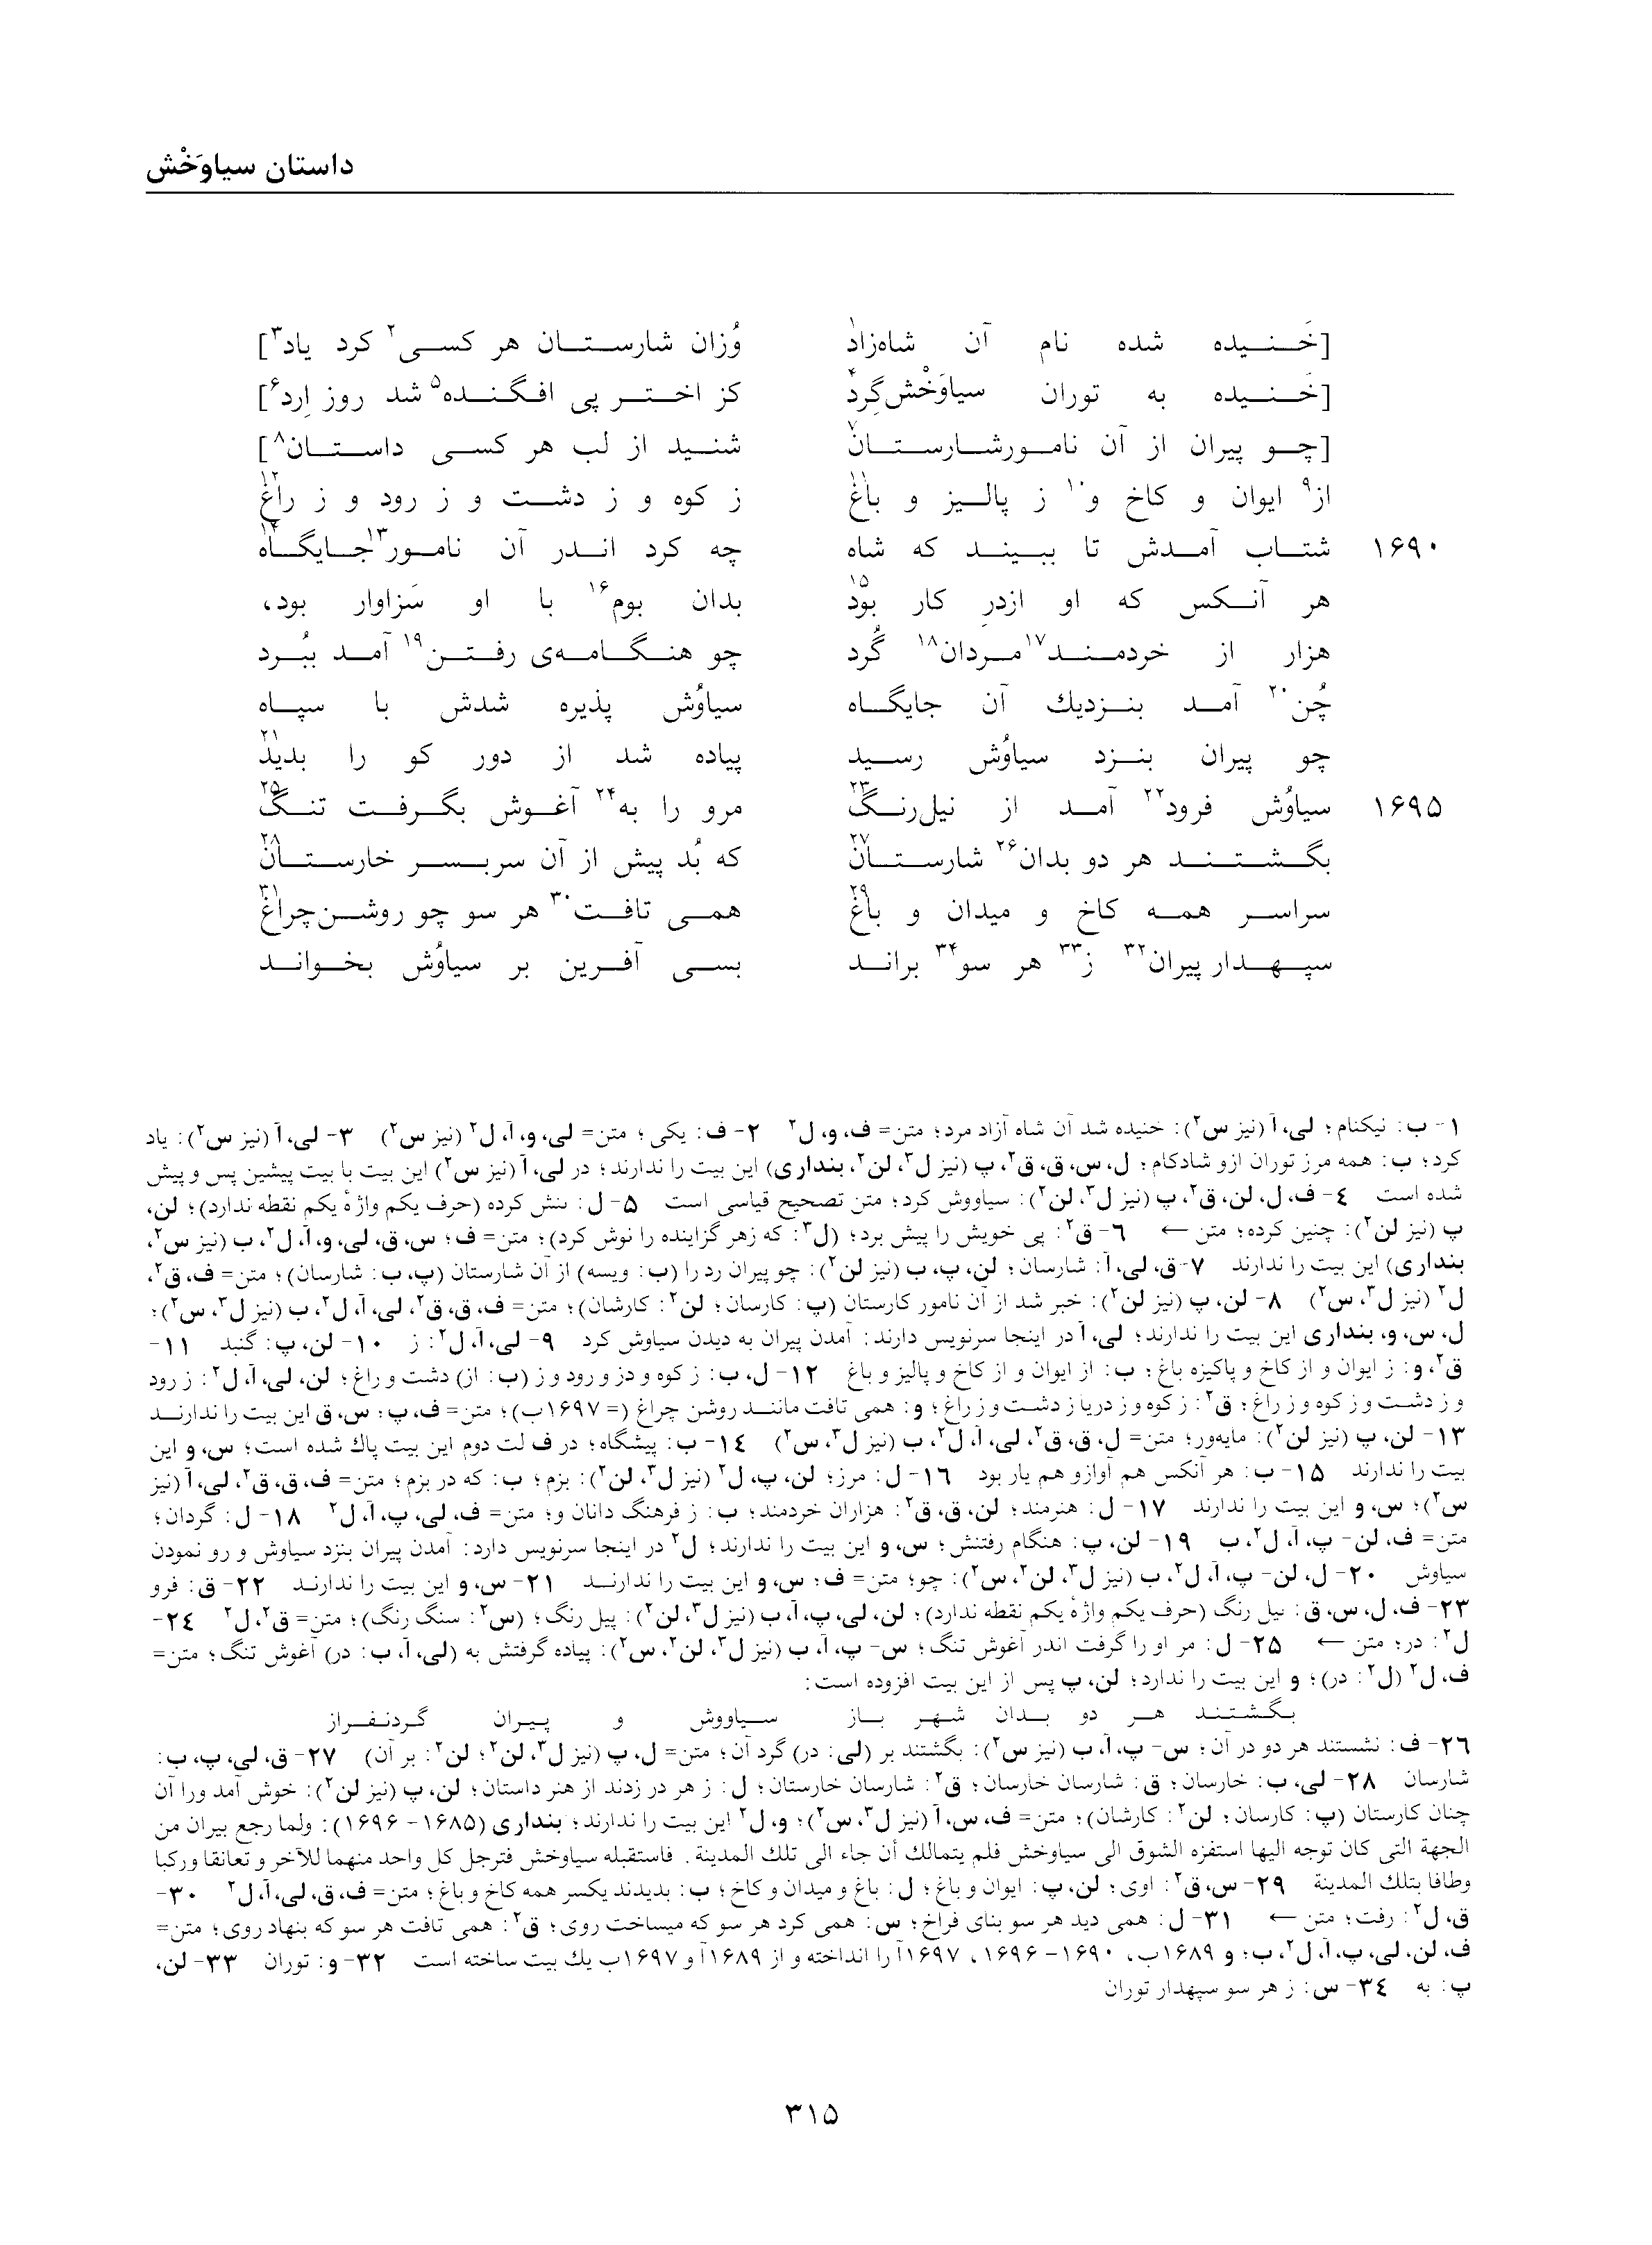 داستان سیاوَخْش
[خَـنـیده شده نام آن شاه‌زاد¹ وُزان شارستان هر کسی² کرد یاد³]
[خَـنـیده به توران سیاوَخْش‌گِرد⁴ کز اختر پی افگنده⁵ شد روز اِرد⁶]
[چو پیران از آن نامورشارستان⁷ شنید از لب هر کسی داستان⁸]
از⁹ ایوان و کاخ و¹⁰ ز پالیز و باغ¹¹ ز کوه و ز دشت و ز رود و ز راغ¹²
۱۶۹۰ شتاب آمدش تا ببیند که شاه چه کرد اندر آن نامور¹³جایگاه¹⁴
هر آنکس که او ازدرِ کار بود¹⁵ بدان بوم¹⁶ با او سَزاوار بود،
هزار از خردمند¹⁷مردان¹⁸ گُرد چو هنگامه‌ی رفتن¹⁹ آمد ببُرد
چُن²⁰ آمد بنزدیك آن جایگاه سیاوُش پذیره شدش با سپاه
چو پیران بنزد سیاوُش رسید پیاده شد از دور کو را بدید²¹
۱۶۹۵ سیاوُش فرود²² آمد از نیل‌رنگ²³ مرو را به²⁴ آغوش بگرفت تنگ²⁵
بگشتند هر دو بدان²⁶ شارستان²⁷ که بُد پیش از آن سربسر خارستان²⁸
سراسر همه کاخ و میدان و باغ²⁹ همی تافت³⁰ هر سو چو روشن‌چراغ³¹
سپهدار پیران³² ز³³ هر سو³⁴ براند بسی آفرین بر سیاوُش بخواند
۱- ب: نیکنام؛ لی، آ (نیز س²): خنیده شد آن شاه آزاد مرد؛ متن= ف، و، ل² ۲- ف: یکی؛ متن= لی، و، آ، ل² (نیز س²) ۳- لی، آ (نیز س²): یاد
کرد؛ ب: همه مرز توران ازو شادکام؛ ل، س، ق، ق²، پ (نیز ل³، لن²، بنداری) این بیت را ندارند؛ در لی، آ (نیز س²) این بیت با بیت پیشین پس و پیش
شده است ۴- ف، ل، لن، ق²، پ (نیز ل³، لن²): سیاووش کرد؛ متن تصحیح قیاسی است ۵- ل: ىنش کرده (حرف یکم واژهٔ یکم نقطه ندارد)؛ لن،
پ (نیز لن²): چنین کرده؛ متن ← ۶- ق²: پی خویش را پیش برد؛ (ل³: که زهر گزاینده را نوش کرد)؛ متن= ف؛ س، ق، لی، و، آ، ل²، ب (نیز س²،
بنداری) این بیت را ندارند ۷- ق، لی، آ: شارسان؛ لن، پ، ب (نیز لن²): چو پیران رد را (ب: ویسه) از آن شارستان (پ، ب: شارسان)؛ متن= ف، ق²،
ل² (نیز ل³، س²) ۸- لن، پ (نیز لن²): خبر شد از آن نامور کارستان (پ: کارسان؛ لن²: کارشان)؛ متن= ف، ق، ق²، لی، آ، ل²، ب (نیز ل³، س²)؛
ل، س، و، بنداری این بیت را ندارند؛ لی، آ در اینجا سرنویس دارند: آمدن پیران به دیدن سیاوش کرد ۹- لی، آ، ل²: ز ۱۰- لن، پ: گنبد ۱۱-
ق²، و: ز ایوان و از کاخ و پاکیزه باغ؛ ب: از ایوان و از کاخ و پالیز و باغ ۱۲- ل، ب: ز کوه و دز و رود و ز (ب: از) دشت و راغ؛ لن، لی، آ، ل²: ز رود
و ز دشت و ز کوه و ز راغ؛ ق²: ز کوه و ز دریا ز دشت و ز راغ؛ و: همی تافت مانند روشن چراغ (= ۱۶۹۷ب)؛ متن= ف، پ؛ س، ق این بیت را ندارند
۱۳- لن، پ (نیز لن²): مایه‌ور؛ متن= ل، ق، ق²، لی، آ، ل²، ب (نیز ل³، س²) ۱۴- ب: پیشگاه؛ در ف لت دوم این بیت پاك شده است؛ س، و این
بیت را ندارند ۱۵- ب: هر آنکس هم آوازو هم یار بود ۱۶- ل: مرز؛ لن، پ، ل² (نیز ل³، لن²): بزم؛ ب: که در بزم؛ متن= ف، ق، ق²، لی، آ (نیز
س²)؛ س، و این بیت را ندارند ۱۷- ل: هنرمند؛ لن، ق، ق²: هزاران خردمند؛ ب: ز فرهنگ دانان و؛ متن= ف، لی، پ، آ، ل² ۱۸- ل: گردان؛
متن= ف، لن- پ، آ، ل²، ب ۱۹- لن، پ: هنگام رفتنش؛ س، و این بیت را ندارند؛ ل² در اینجا سرنویس دارد: آمدن پیران بنزد سیاوش و رو نمودن
سیاوش ۲۰- ل، لن- پ، آ، ل²، ب (نیز ل³، لن²، س²): چو؛ متن= ف؛ س، و این بیت را ندارند ۲۱- س، و این بیت را ندارند ۲۲- ق: فرو
۲۳- ف، ل، س، ق: ىیل رنگ (حرف یکم واژهٔ یکم نقطه ندارد)؛ لن، لی، پ، آ، ب (نیز ل³، لن²): پیل رنگ؛ (س²: سنگ رنگ)؛ متن= ق²، ل² ۲۴-
ل²: در؛ متن ← ۲۵- ل: مر او را گرفت اندر آغوش تنگ؛ س- پ، آ، ب (نیز ل³، لن²، س²): پیاده گرفتش به (لی، آ، ب: در) آغوش تنگ؛ متن=
ف، ل² (ل²: در)؛ و این بیت را ندارد؛ لن، پ پس از این بیت افزوده است:
بگشتند هر دو بدان شهر باز سیاووش و پیران گردنفراز
۲۶- ف: نشستند هر دو در آن؛ س- پ، آ، ب (نیز س²): بگشتند بر (لی: در) گرد آن؛ متن= ل، پ (نیز ل³، لن²؛ لن²: بر آن) ۲۷- ق، لی، پ، ب:
شارسان ۲۸- لی، ب: خارسان؛ ق: شارسان خارسان؛ ق²: شارسان خارستان؛ ل: ز هر در زدند از هنر داستان؛ لن، پ (نیز لن²): خوش آمد ورا آن
چنان کارستان (پ: کارسان؛ لن²: کارشان)؛ متن= ف، س، آ (نیز ل³، س²)؛ و، ل² این بیت را ندارند؛ بنداری (۱۶۸۵- ۱۶۹۶): ولما رجع بیران من
الجهة التی کان توجه الیها استفزه الشوق الی سیاوخش فلم یتمالك أن جاء الی تلك المدینة. فاستقبله سیاوخش فترجل کل واحد منهما للآخر و تعانقا ورکبا
وطافا بتلك المدینة ۲۹- س، ق²: اوی؛ لن، پ: ایوان و باغ؛ ل: باغ و میدان و کاخ؛ ب: بدیدند یکسر همه کاخ و باغ؛ متن= ف، ق، لی، آ، ل² ۳۰-
ق، ل²: رفت؛ متن ← ۳۱- ل: همی دید هر سو بنای فراخ؛ س: همی کرد هر سو که میساخت روی؛ ق²: همی تافت هر سو که بنهاد روی؛ متن=
ف، لن، لی، پ، آ، ل²، ب؛ و ۱۶۸۹ب، ۱۶۹۰- ۱۶۹۶، ۱۶۹۷آ را انداخته و از ۱۶۸۹آ و ۱۶۹۷ب یك بیت ساخته است ۳۲- و: توران ۳۳- لن،
پ: به ۳۴- س: ز هر سو سپهدار توران
۳۱۵